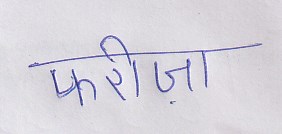 फरीज़ा